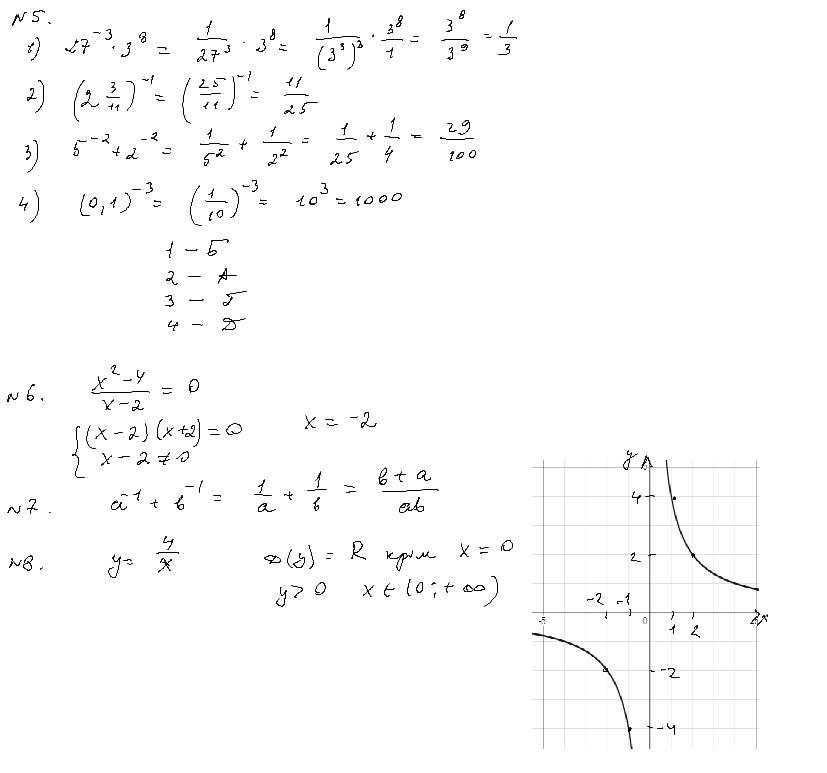 №5.
1) 27⁻³ · 3⁸ = 1/27³ · 3⁸ = 1/(3³)³ · 3⁸/1 = 3⁸/3⁹ = 1/3
2) (2 3/11)⁻¹ = (25/11)⁻¹ = 11/25
3) 5⁻² + 2⁻² = 1/5² + 1/2² = 1/25 + 1/4 = 29/100
4) (0,1)⁻³ = (1/10)⁻³ = 10³ = 1000
1 – Б
2 – А
3 – Г
4 – Д
№6. x²–4/x–2 = 0
{(x–2)(x+2) = 0 x = –2
x–2 ≠ 0
№7. a⁻¹ + b⁻¹ = 1/a + 1/b = b+a/ab
№8. y = 4/x D(y) = R крім x = 0
y > 0 x ∈ (0; +∞)
y
4
2
-2 -1
-5 0 1 2 5 x
-2
-4